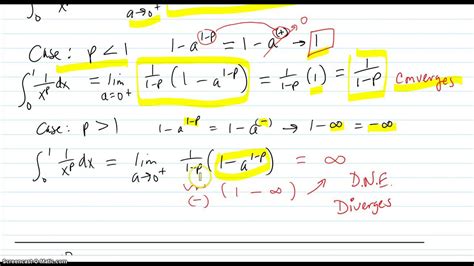 ∫₀¹ 1/xᵖ dx a→0⁺
Case: p < 1 1 - a^(1-p) = 1 - a^(+) → 1 0
∫₀¹ 1/xᵖ dx = lim a=0⁺ 1/(1-p) (1 - a^(1-p)) = 1/(1-p) (1) = 1/(1-p) converges
Case: p > 1 1 - a^(1-p) = 1 - a^(-) → 1 - ∞ = -∞
∫₀¹ 1/xᵖ dx = lim a→0⁺ 1/(1-p) (1 - a^(1-p)) = ∞
(-) (1 - ∞) D.N.E.
Diverges
Screencast-O-Matic.com